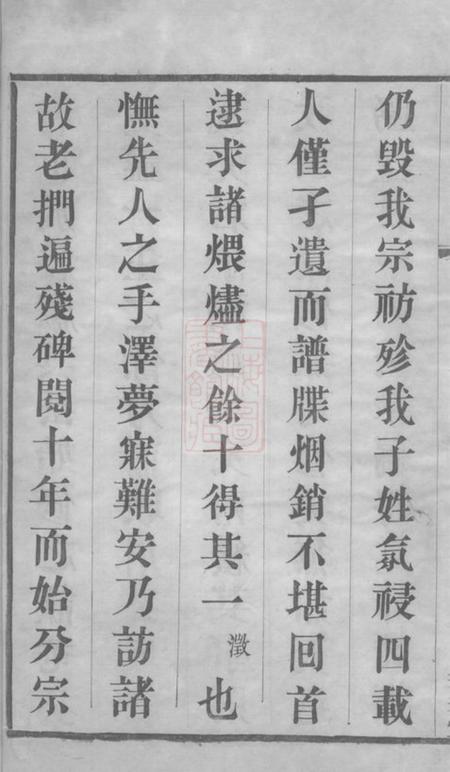 仍毀我宗祊殄我子姓氛祲四載
人僅孑遺而譜牒烟銷不堪回首
逮求諸煨燼之餘十得其一澂也
憮先人之手澤夢寐難安乃訪諸
故老捫遍殘碑閱十年而始分宗